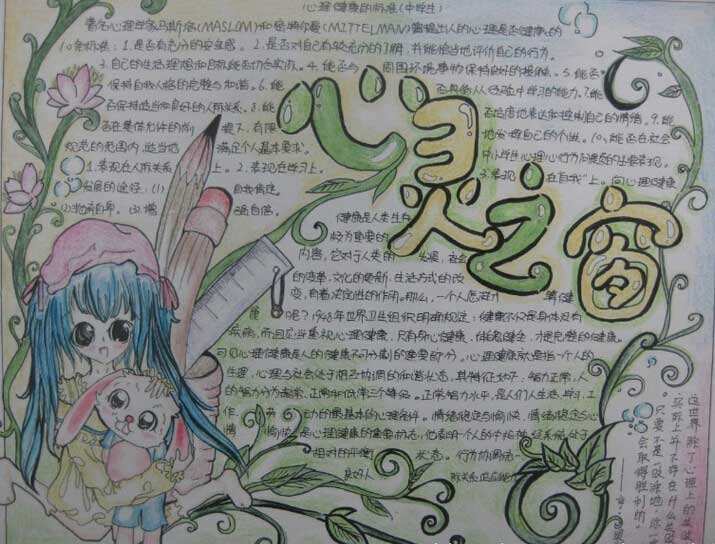 心理健康的标准(中学生)
心灵之窗
著名心理学家马斯洛(MASLOW)和密特尔曼(MITTELMAN)曾提出人的心理是否健康的
10条标准:1.是否有充分的安全感。2.是否对自己有较充分的了解,并能恰当地评价自己的行为。
3.自己的生活理想和目标能否切合实际。4.能否与周围环境事物保持良好的接触。5.能否
保持自我人格的完整与和谐。6.能否具备从经验中学习的能力。7.能
否保持适当和良好的人际关系。8.能否适度地表达和控制自己的情绪。9.能
否在集体允许的前提下,有限地发挥自己的个性。10.能否在社会
规范的范围内,适当地满足个人基本要求。
中小学生心理
1.表现在人际关系上。2.表现在学习上。3.表现在"自我"上。向心理健康
发展的途径:(1)自我
(2) 自卑。(3)增强自信。
健康是人类生存
极为重要的
内容,它对于人类的发展,社会
的变革,文化的更新,生活方式的改
变,有着决定性的作用。那么,一个人怎
呢?1948年世界卫生组织明确规定:健康不仅是身体没有
疾病,而且应当重视心理健康,只有身心健康、体魄健全,才是完整的健康。
可见心理健康是人的健康不可分割的重要部分。心理健康就是指一个人的
生理、心理与社会处于相互协调的和谐状态,其特征如下:智力正常,人
的智力分为超常、正常和低常三个等级。正常智力水平,是人们生活、学习、工
作、动的最基本的心理条件。情绪稳定与愉快,情绪稳定与心
情愉快是心理健康的重要标志,它表明一个人的中枢神经系统处于
相对的平衡状态。行为协调
良好人际关系
这世界除了心理上的失败
实际上并不存在什么失败
只要不是一败涂地,你一
会取得胜利的。